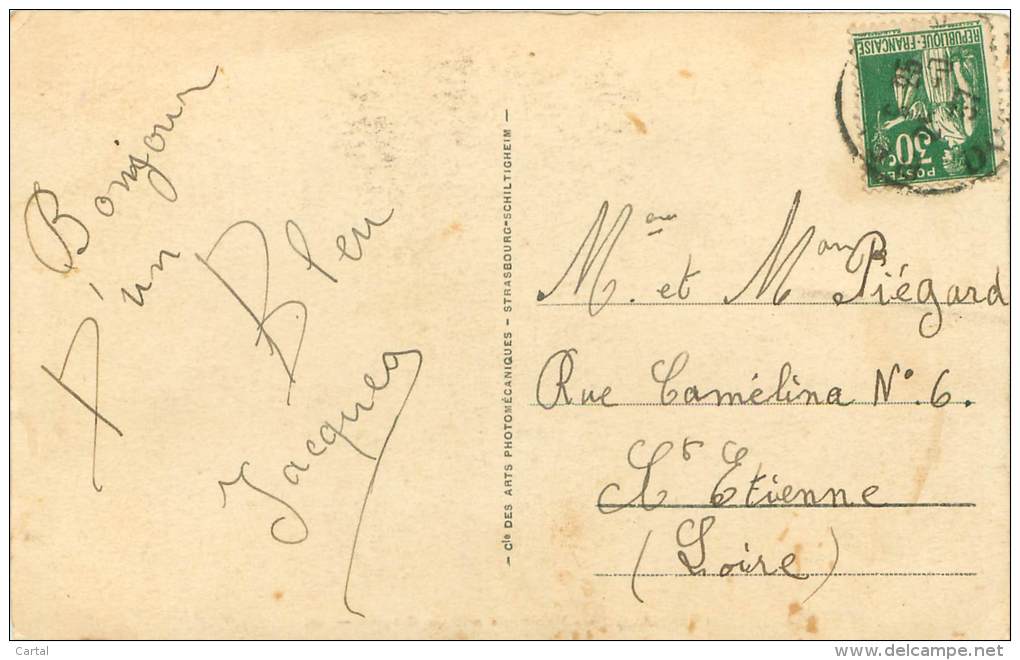 Bonjour
d'un Bleu
Jacques
— Cie DES ARTS PHOTOMÉCANIQUES - STRASBOURG-SCHILTIGHEIM —
REPUBLIQUE·FRANÇAISE
30c
POSTES
M. et Mme Piégard
Rue Camélina N° 6.
St Etienne
(Loire)
Cartal
www.delcampe.net